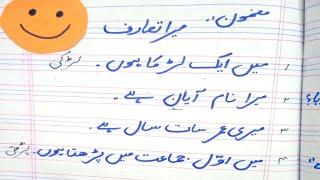 مضمون:
میرا تعارف
۱ میں ایک لڑکا ہوں۔ لڑکی
۲ میرا نام آیان ہے۔
۳ میری عمر سات سال ہے۔
۴ میں اوّل جماعت میں پڑھتا ہوں۔ پڑھتی